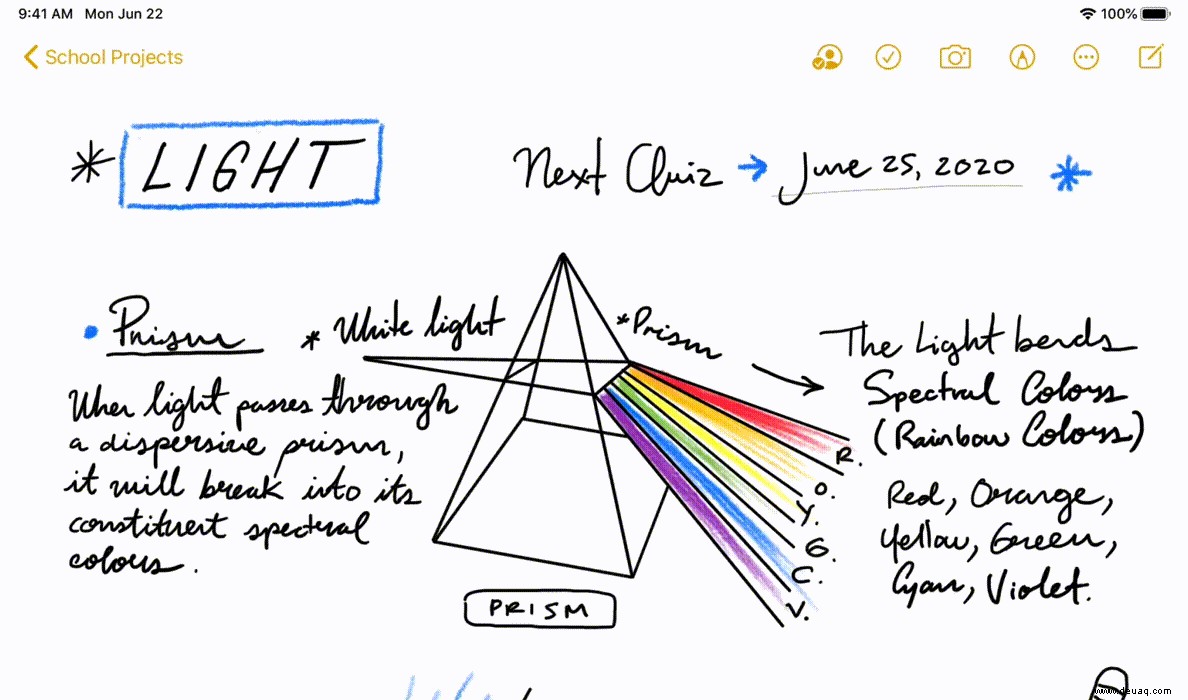 9:41 AM Mon Jun 22
100%
School Projects
* LIGHT
Next Quiz → June 25, 2020 *
• Prism
When light passes through
a dispersive prism,
it will break into its
constituent spectral
colours.
* White light
*Prism
R.
O.
Y.
G.
C.
V.
PRISM
The Light bends
Spectral Colours
(Rainbow Colours)
Red, Orange,
Yellow, Green,
Cyan, Violet.
www.deuaq.com